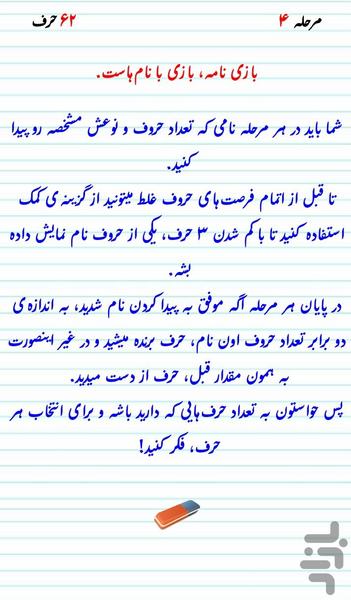 مرحله ۴
۶۲ حرف
بازی نامه، بازی با نام‌هاست.
شما باید در هر مرحله نامی که تعداد حروف و نوعش مشخصه رو پیدا
کنید.
تا قبل از اتمام فرصت‌های حروف غلط میتونید از گزینه‌ی کمک
استفاده کنید تا با کم شدن ۳ حرف، یکی از حروف نام نمایش داده
بشه.
در پایان هر مرحله اگه موفق به پیدا کردن نام شدید، به اندازه‌ی
دو برابر تعداد حروف اون نام، حرف برنده میشید و در غیر اینصورت
به همون مقدار قبل، حرف از دست میدید.
پس حواستون به تعداد حرف‌هایی که دارید باشه و برای انتخاب هر
حرف، فکر کنید!
بازار